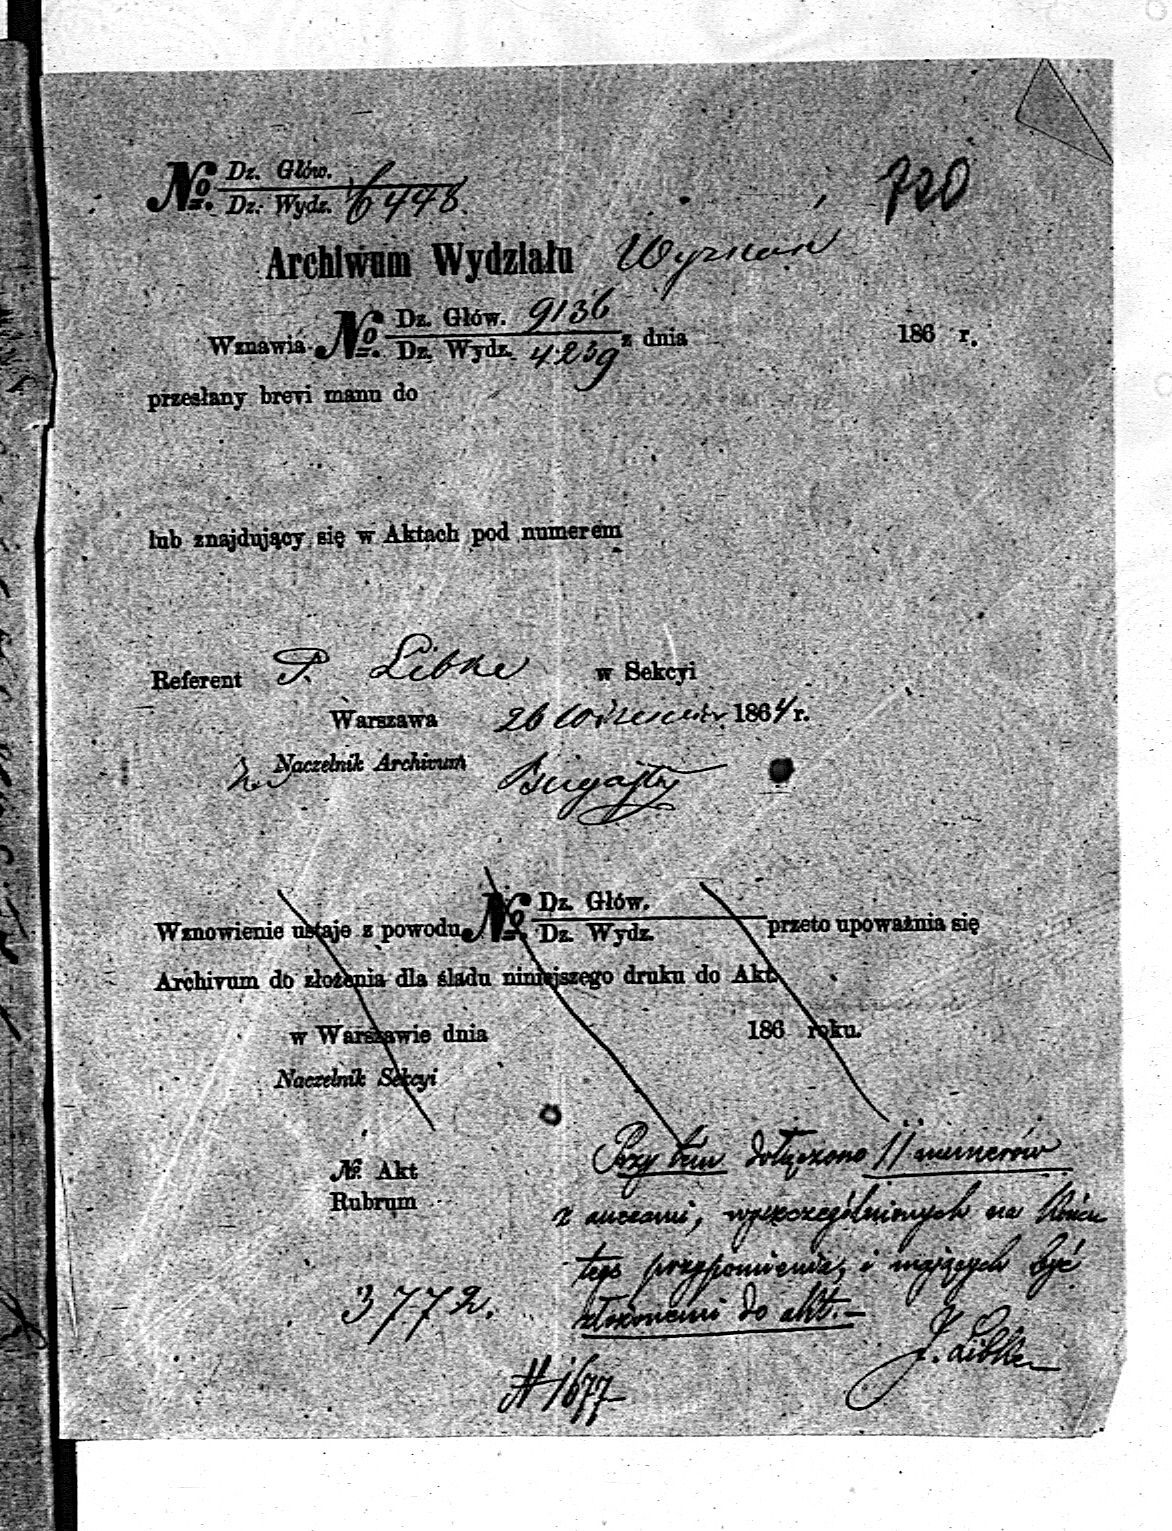 720
№. Dz. Głów.
Dz. Wydz. 6448.
Archiwum Wydziału Wyznań
Wznawia № Dz. Głów. 9136
Dz. Wydz. 4239 z dnia 186 r.
przesłany brevi manu do
lub znajdujący się w Aktach pod numerem
Referent P. Libke w Sekcyi
Warszawa 26 Września 1864 r.
Naczelnik Archivum Bugajski
Wznowienie ustaje z powodu № Dz. Głów.
Dz. Wydz. przeto upoważnia się
Archivum do złożenia dla śladu niniejszego druku do Akt
w Warszawie dnia 186 roku.
Naczelnik Sekcyi
№ Akt
Rubrum
Przy tem dołączono 11 numerów
z anexami, wyszczególnionych na końcu
tego przypomnienia, i mających być
złożonemi do akt.—
J. Libke
3772.
1677